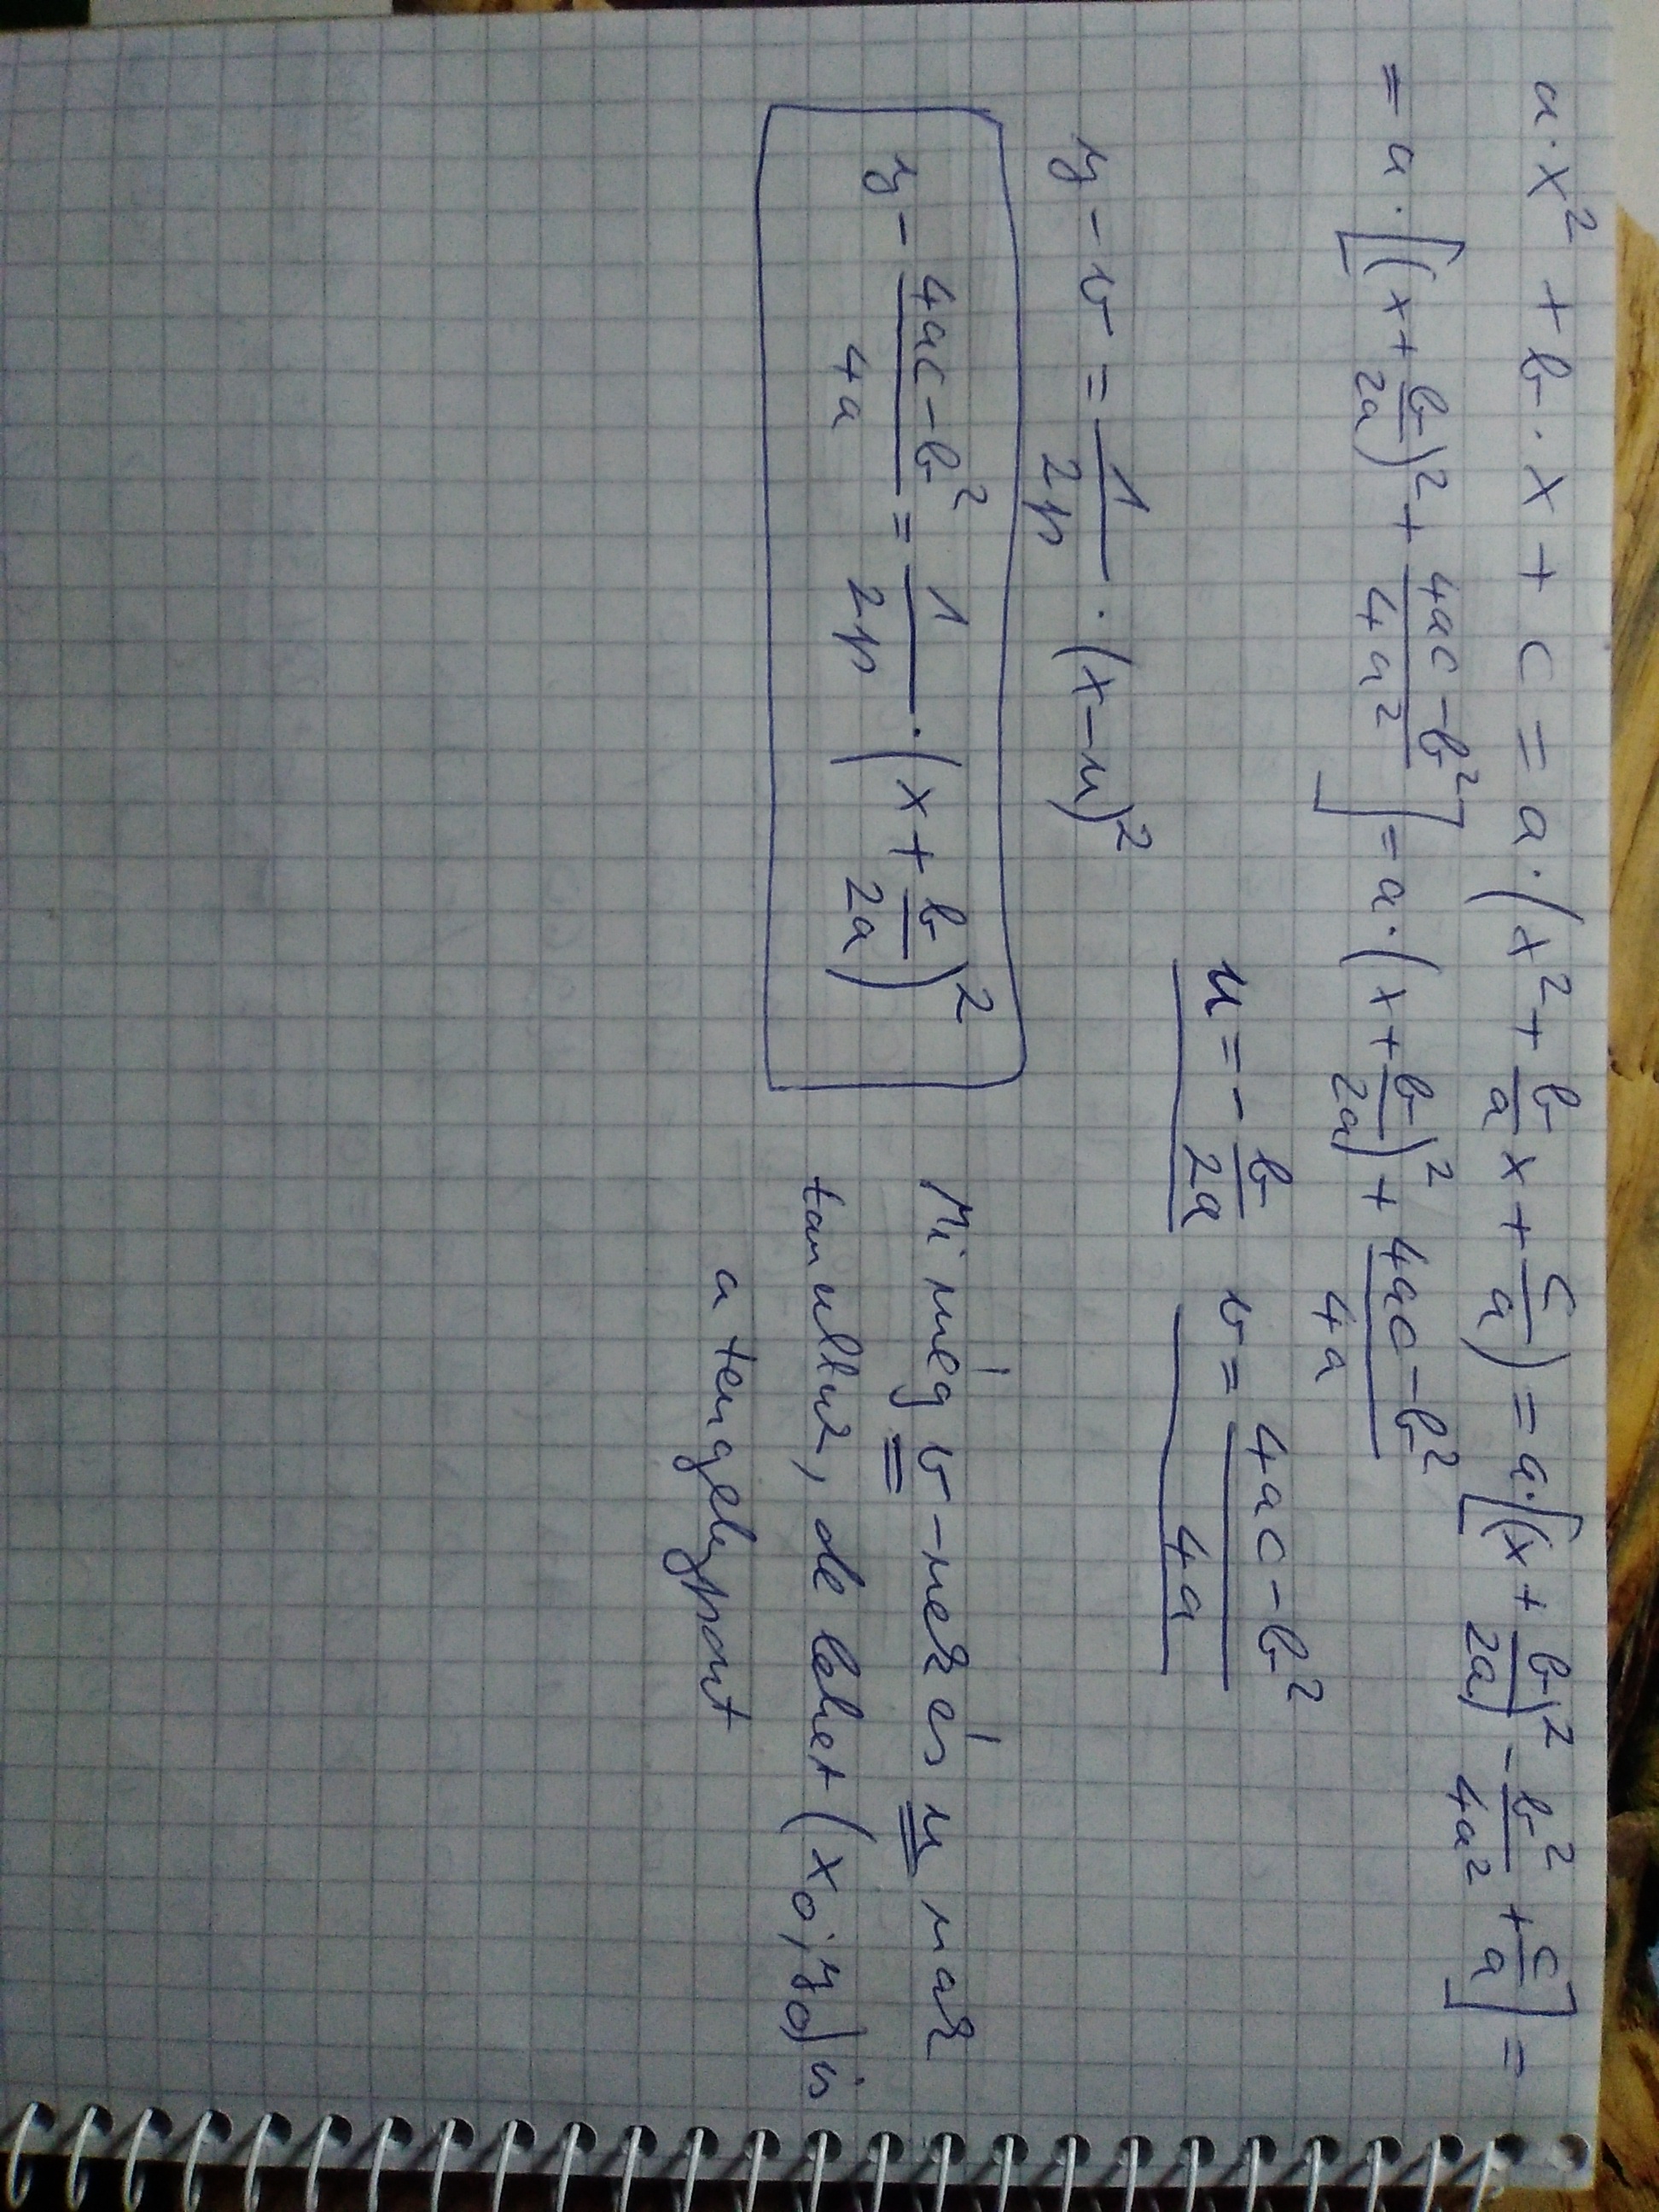 a·x² + b·x + c = a·(x² + b/a x + c/a) = a·[(x + b/2a)² - b²/4a² + c/a] =
= a·[(x + b/2a)² + (4ac - b²)/4a²] = a·(x + b/2a)² + (4ac - b²)/4a
u = - b/2a   v = (4ac - b²)/4a
y - v = 1/2p · (x - u)²
y - (4ac - b²)/4a = 1/2p · (x + b/2a)²
Mi még v-nek és u nak
tanultuk, de lehet (x0; y0) is
a tengelypont